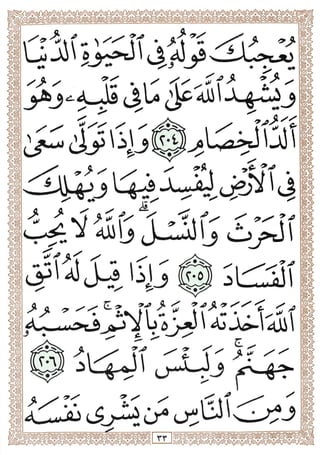 يُعْجِبُكَ قَوْلُهُۥ فِى ٱلْحَيَوٰةِ ٱلدُّنْيَا
وَيُشْهِدُ ٱللَّهَ عَلَىٰ مَا فِى قَلْبِهِۦ وَهُوَ
أَلَدُّ ٱلْخِصَامِ ٢٠٤ وَإِذَا تَوَلَّىٰ سَعَىٰ
فِى ٱلْأَرْضِ لِيُفْسِدَ فِيهَا وَيُهْلِكَ
ٱلْحَرْثَ وَٱلنَّسْلَ ۗ وَٱللَّهُ لَا يُحِبُّ
ٱلْفَسَادَ ٢٠٥ وَإِذَا قِيلَ لَهُ ٱتَّقِ
ٱللَّهَ أَخَذَتْهُ ٱلْعِزَّةُ بِٱلْإِثْمِ ۚ فَحَسْبُهُۥ
جَهَنَّمُ ۚ وَلَبِئْسَ ٱلْمِهَادُ ٢٠٦
وَمِنَ ٱلنَّاسِ مَن يَشْرِى نَفْسَهُ
٣٣